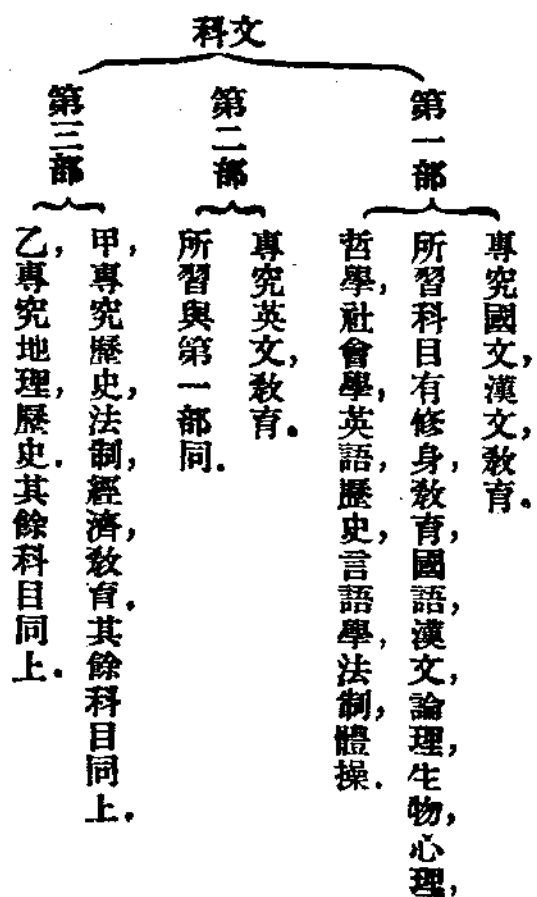 科文
第一部
專究國文，漢文，敎育。
所習科目有修身，敎育，國語，漢文，論理，生物，心理，
哲學，社會學，英語，歷史，言語學，法制，體操．
第二部
專究英文，敎育。
所習與第一部同．
第三部
甲，專究歷史，法制，經濟敎育．其餘科目同上．
乙，專究地理，歷史．其餘科目同上．